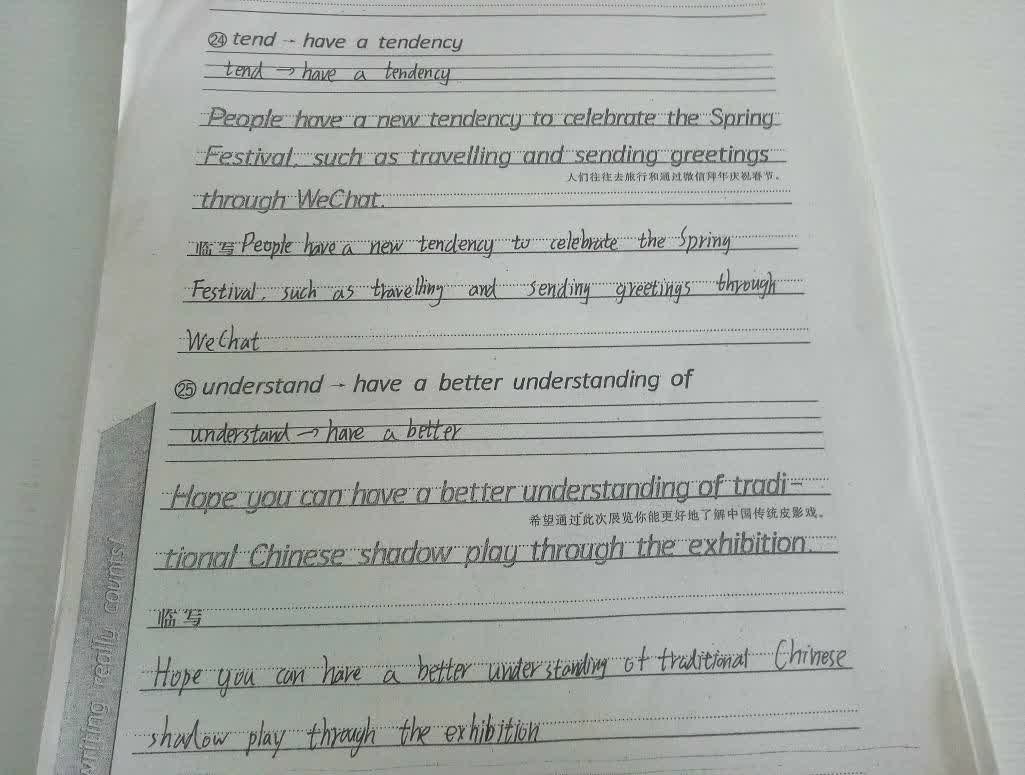 ㉔ tend → have a tendency
tend → have a tendency
People have a new tendency to celebrate the Spring
Festival, such as travelling and sending greetings
人们往往去旅行和通过微信拜年庆祝春节。
through WeChat.
临写 People have a new tendency to celebrate the Spring
Festival, such as travelling and sending greetings through
WeChat
㉕ understand → have a better understanding of
understand → have a better
Hope you can have a better understanding of tradi-
希望通过此次展览你能更好地了解中国传统皮影戏。
tional Chinese shadow play through the exhibition.
临写
Hope you can have a better understanding of traditional Chinese
shadow play through the exhibition
writing really counts!